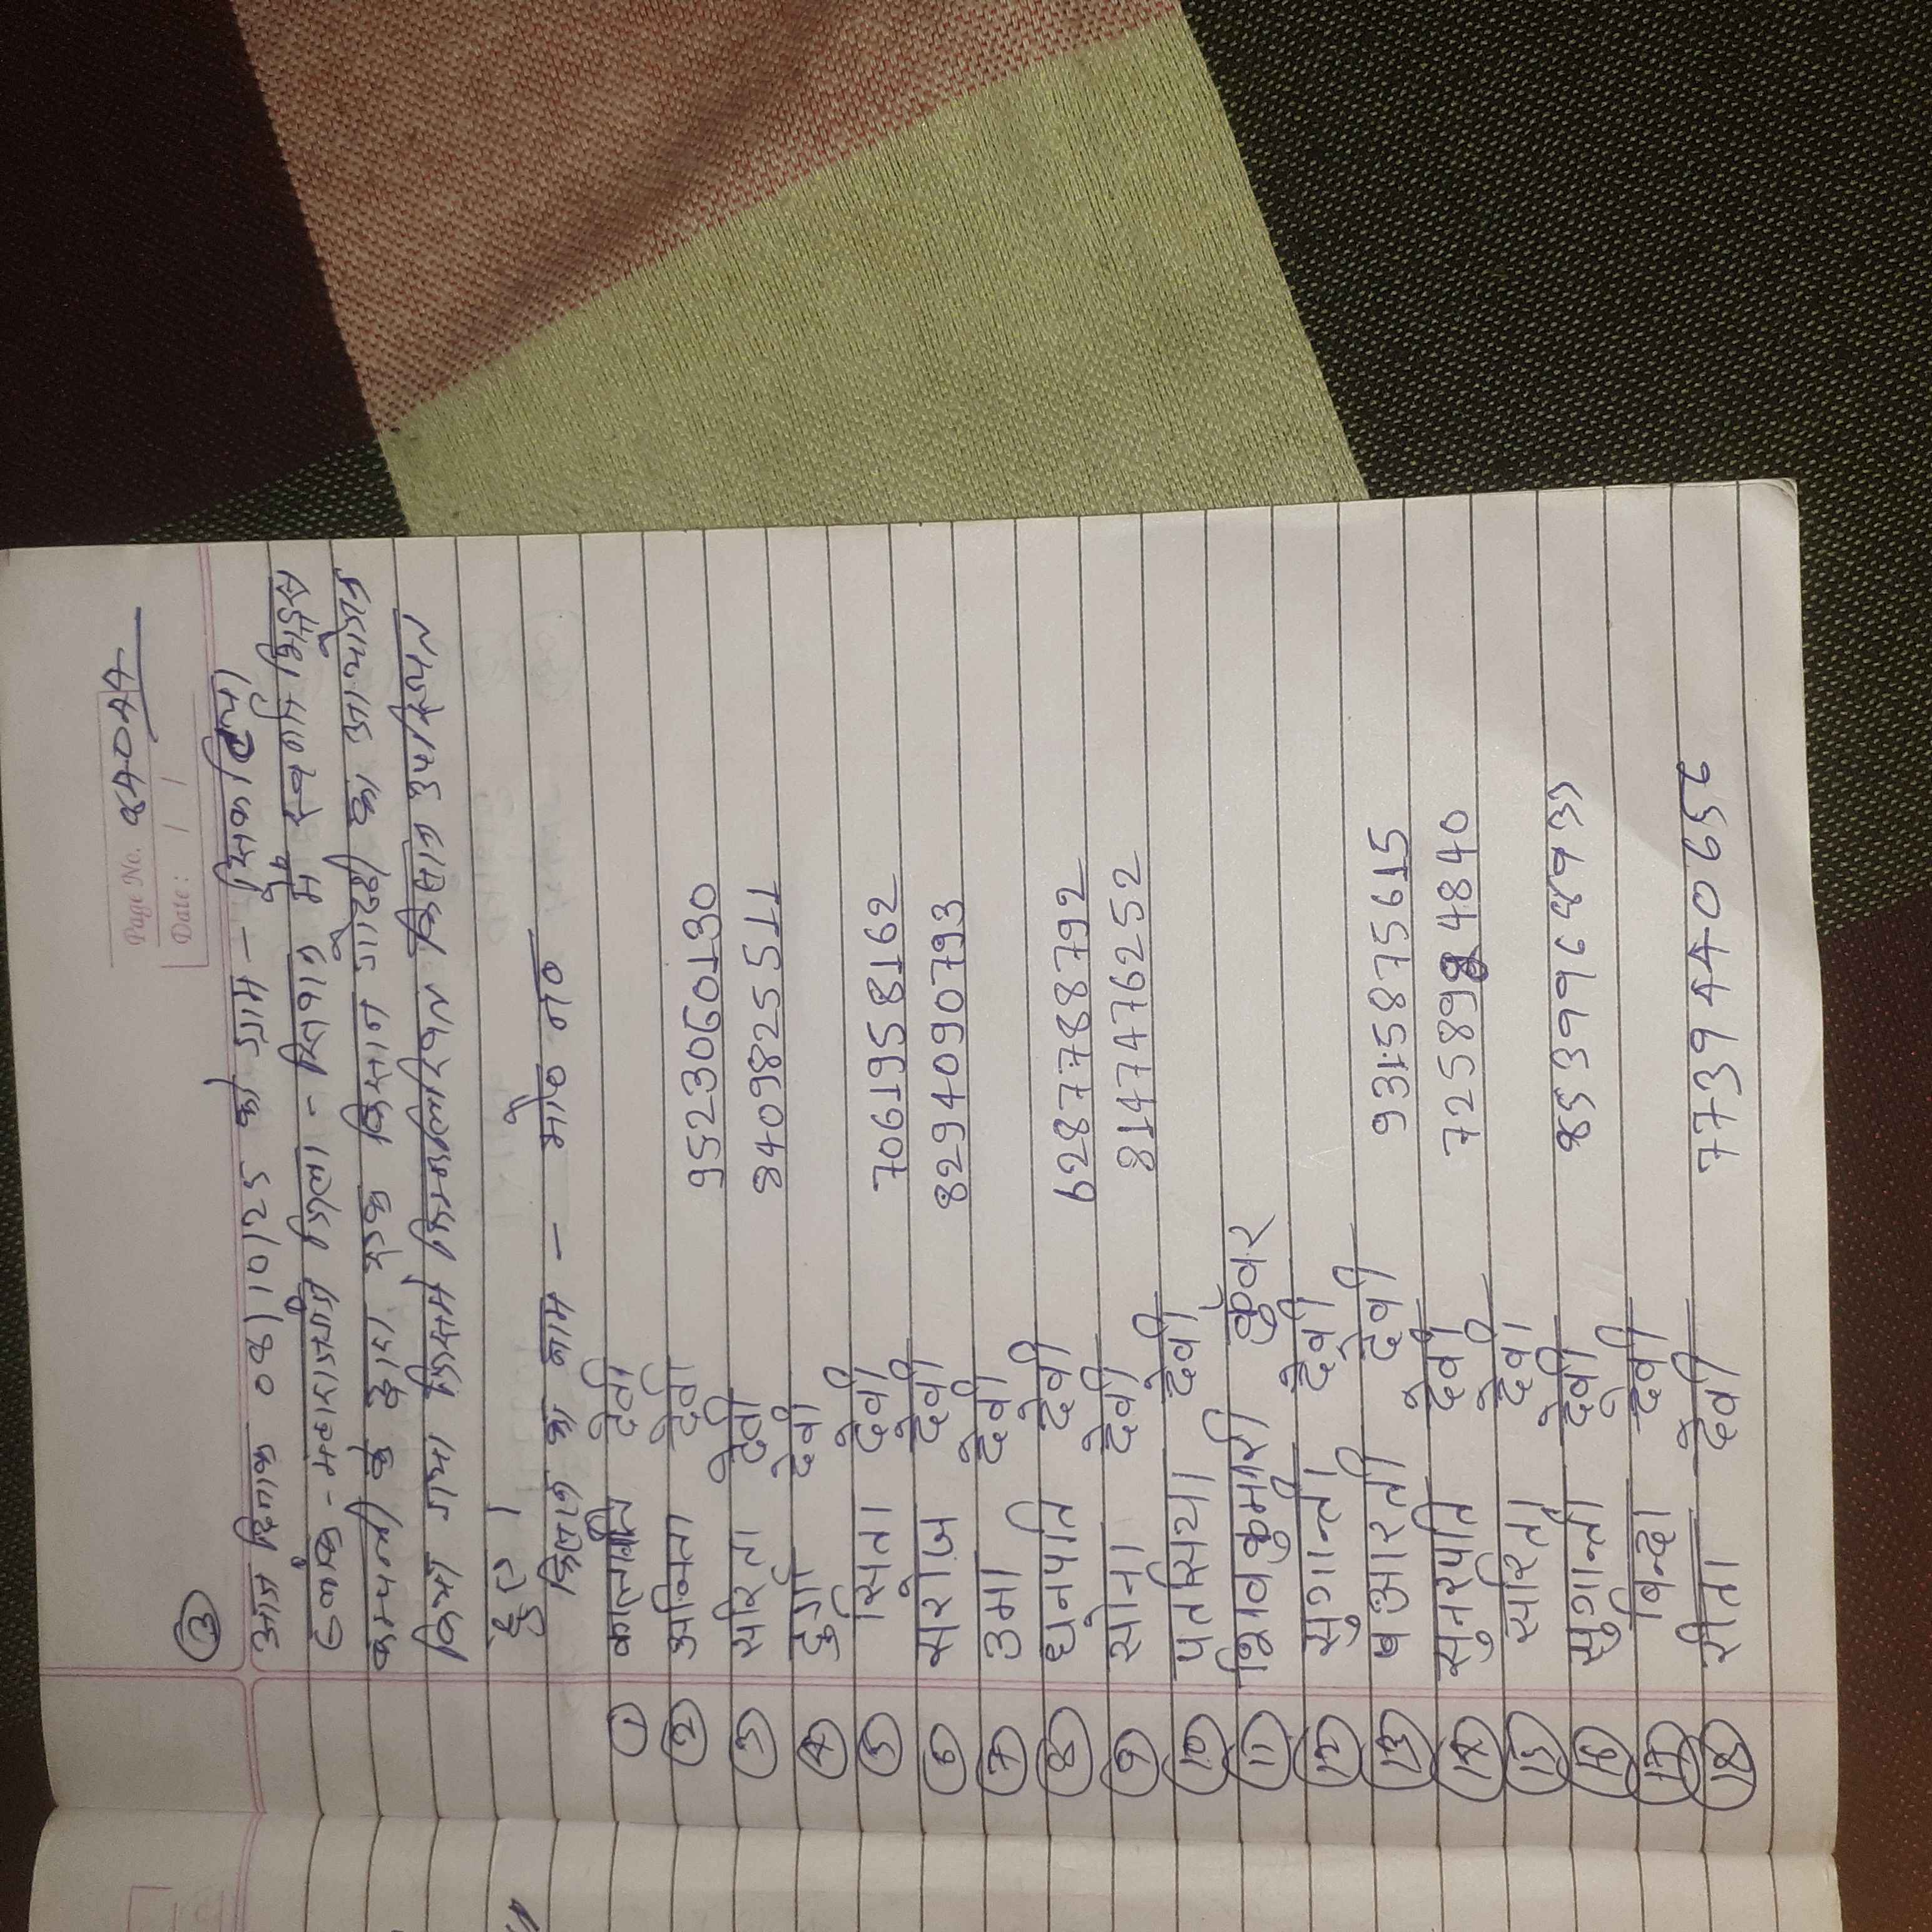 Page No. 84044
Date: / /
③
आज दिनांक 08/10/25 को ग्राम - सिकटिया
ब्लॉक - महाराजगंज जिला - सिवान में स्वर्णिम
कम्पनी के द्वारा एक किसान गोष्ठी का आयोजन
किया गया जिसमें निम्नलिखित किसान उपस्थित
हुए ।
किसान का नाम - मो० न०
① कलावती देवी
② अनिता देवी 9523060130
③ सरिता देवी 8409825511
④ दुर्गा देवी
⑤ सिता देवी 7061958162
⑥ सरोज देवी 8294090793
⑦ उमा देवी
⑧ धनपति देवी 6287788792
⑨ सोना देवी 8147476252
⑩ पतसिया देवी
⑪ शिवकुमारी कुँवर
⑫ सुगान्ती देवी
⑬ आरती देवी 9315875615
⑭ सुनरपति देवी 7258984840
⑮ सरिता देवी
⑯ सुगान्ती देवी 8539968933
⑰ बिन्दा देवी
⑱ रीता देवी 7739440656